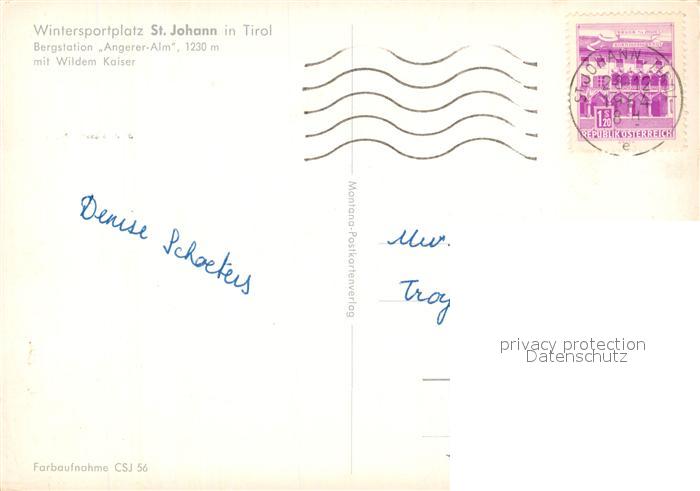 Wintersportplatz St. Johann in Tirol
Bergstation „Angerer-Alm", 1230 m
mit Wildem Kaiser
1 S 20
REPUBLIK ÖSTERREICH
Denise Schoeters
Montana-Postkartenverlag
Mw.
Troy
privacy protection
Datenschutz
Farbaufnahme CSJ 56